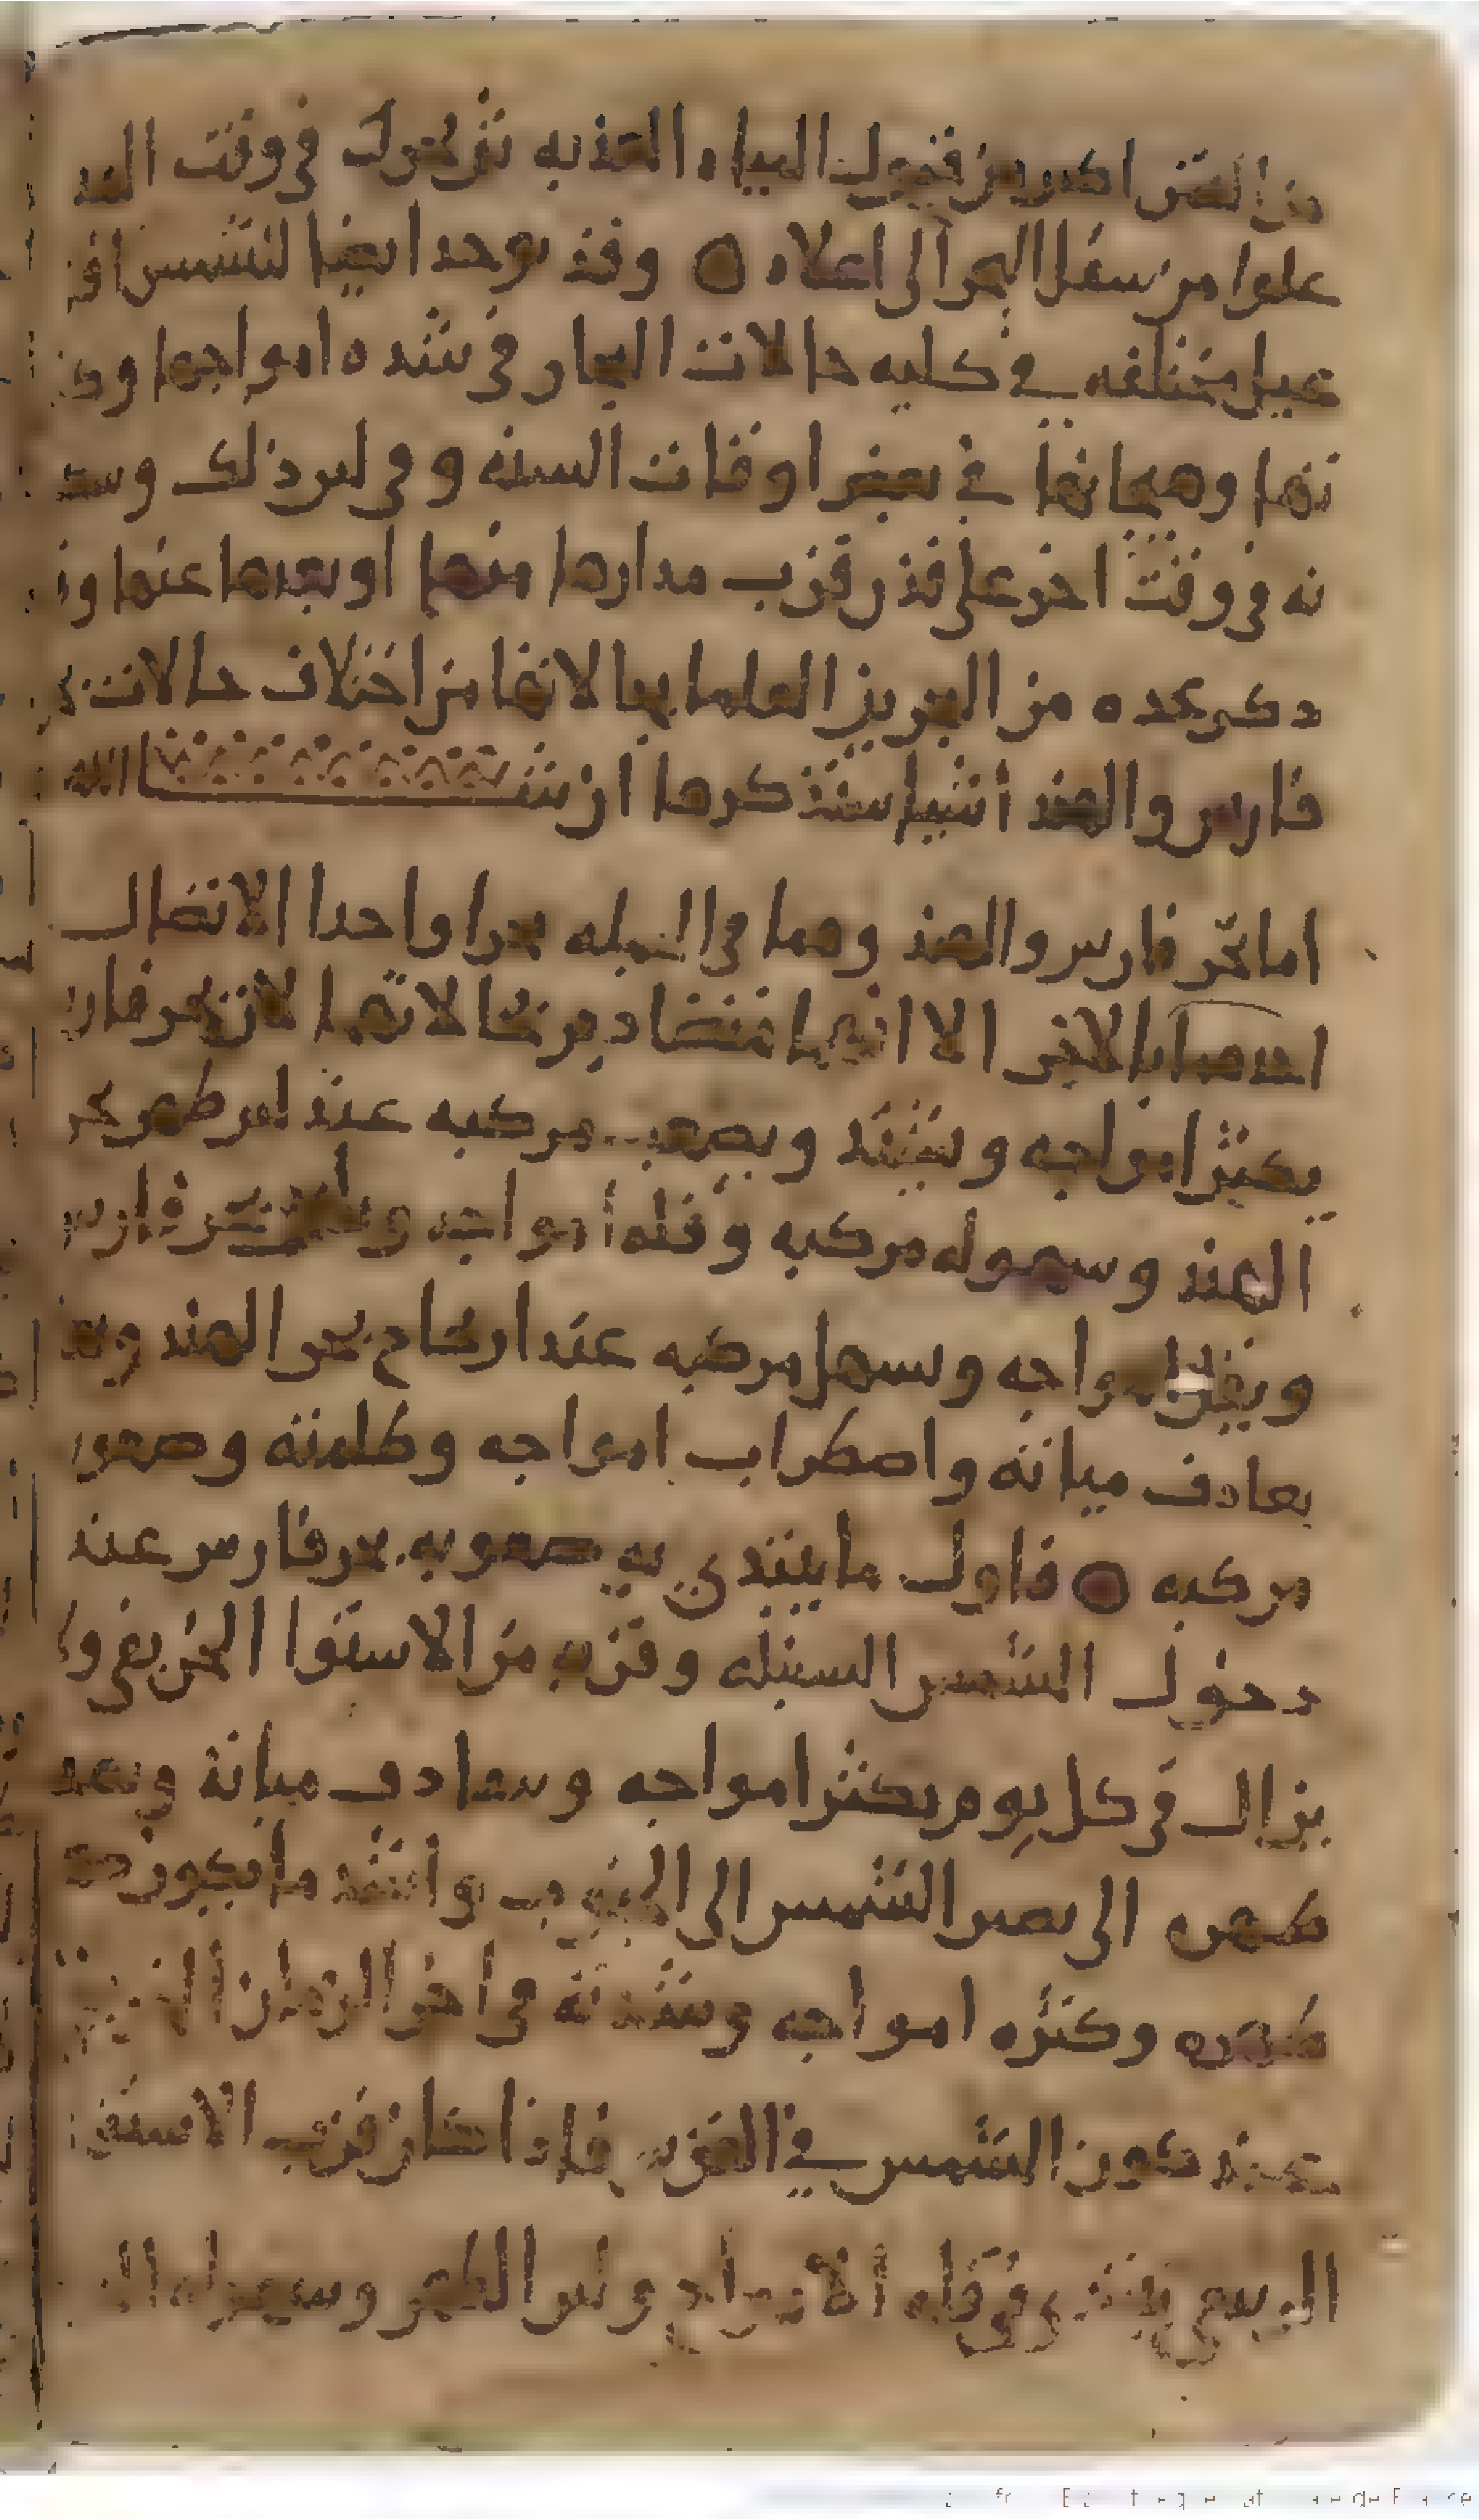 من القمر اكثر من قبول المياه العذبه ثم تتحرك في وقت المد
علوا من سفل البحر الى اعلاه ○ وقد يوجد ايضا للشمس افا
عيل مختلفه في كليه حالات البحار في شده امواجها وكثر
تها وهيجانها في بعض اوقات السنه وفي لين ذلك وسكو
نه في وقت اخر على قدر قرب مدارها منها او بعدها عنها
دكر عده من البحريين العلما بها لانها من اختلاف حالات بحر
فارس والهند اشيا سنذكرها ان شا الله
اما بحر فارس والهند وهما في الجمله بحرا واحدا لاتصال
احدهما بالاخر الا انهما متضادين بحالاتهما لان بحر فارس
يكثر امواجه ويشتد ويصعب مركبه عند لين ظهر بحر
الهند وسهوله مركبه وقله امواجه ويلين بحر فارس
ويقل امواجه ويسهل مركبه عند ارتجاج بحر الهند
تعادف مياته واضطراب امواجه وظلمته وصعوبه
مركبه ○ فاول ما يبتدي به صعوبه بحر فارس عند
دخول الشمس السنبله وقربه من الاستوا الخريفي ولا
يزال في كل يوم يكثر امواجه ويتعادف مياته ويصعب
ظهره الى يصير الشمس الى الحوت واشد ما يكون صعوبه
ظهره وكثره امواجه وشدته في اخر الزمان الخريفي
عند كون الشمس في القوس فاذا كان قرب الاستوا
الربيعي يبتدي في قله الامواج ولين الظهر وسهوله